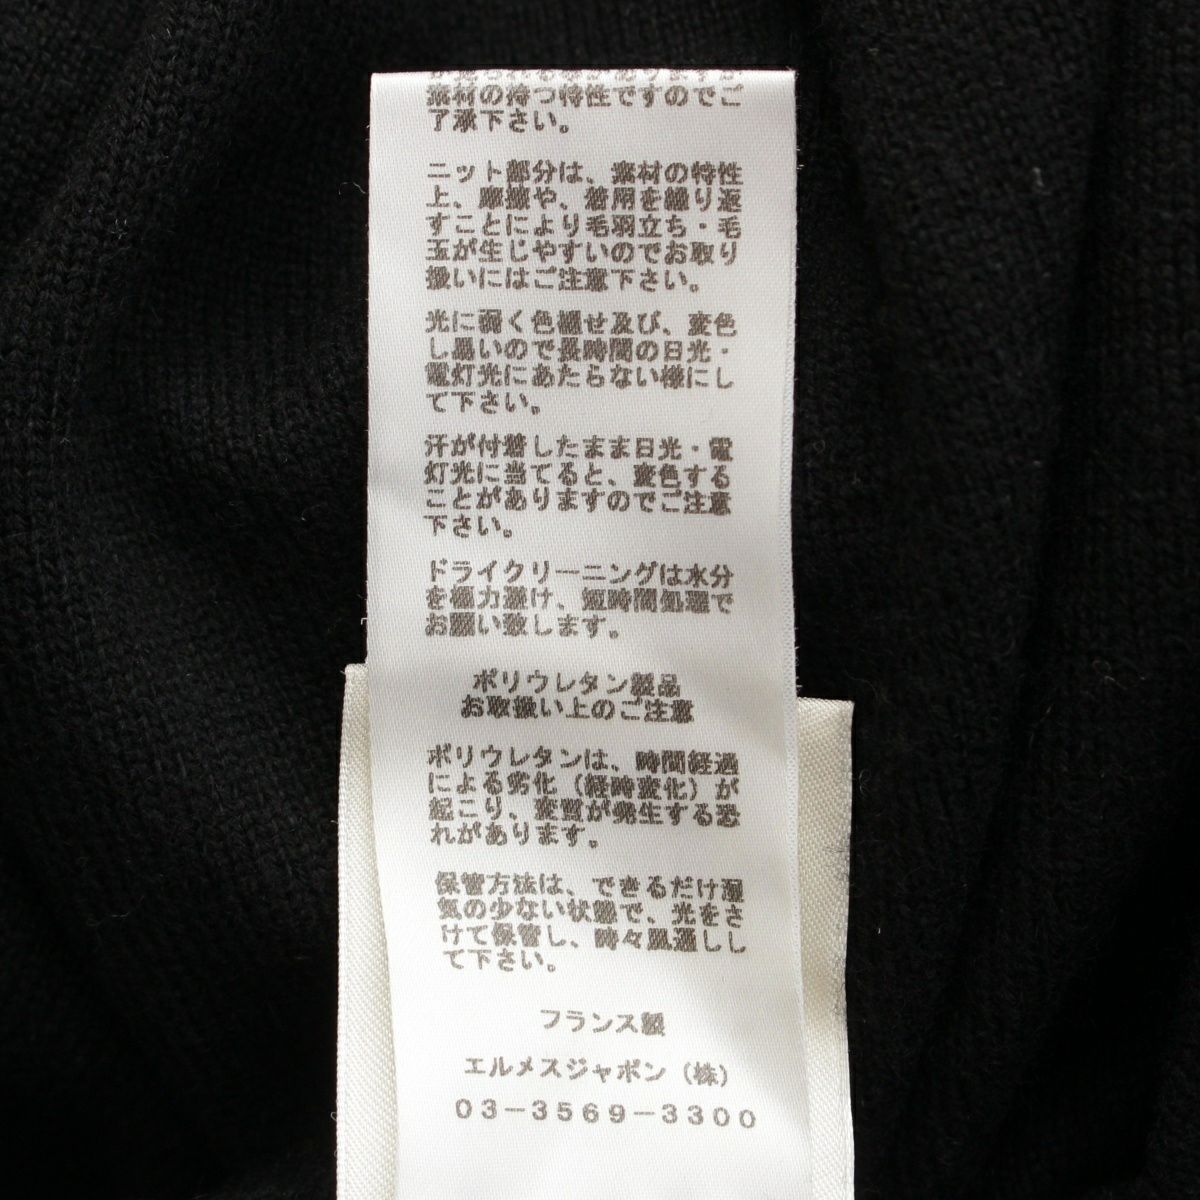 素材の持つ特性ですのでご
了承下さい。
ニット部分は、素材の特性
上、摩擦や、着用を繰り返
すことにより毛羽立ち・毛
玉が生じやすいのでお取り
扱いにはご注意下さい。
光に弱く色褪せ及び、変色
し易いので長時間の日光・
電灯光にあたらない様にし
て下さい。
汗が付着したまま日光・電
灯光に当てると、変色する
ことがありますのでご注意
下さい。
ドライクリーニングは水分
を極力避け、短時間処理で
お願い致します。
ポリウレタン製品
お取扱い上のご注意
ポリウレタンは、時間経過
による劣化（経時変化）が
起こり、変質が発生する恐
れがあります。
保管方法は、できるだけ湿
気の少ない状態で、光をさ
けて保管し、時々風通しし
て下さい。
フランス製
エルメスジャポン（株）
03-3569-3300